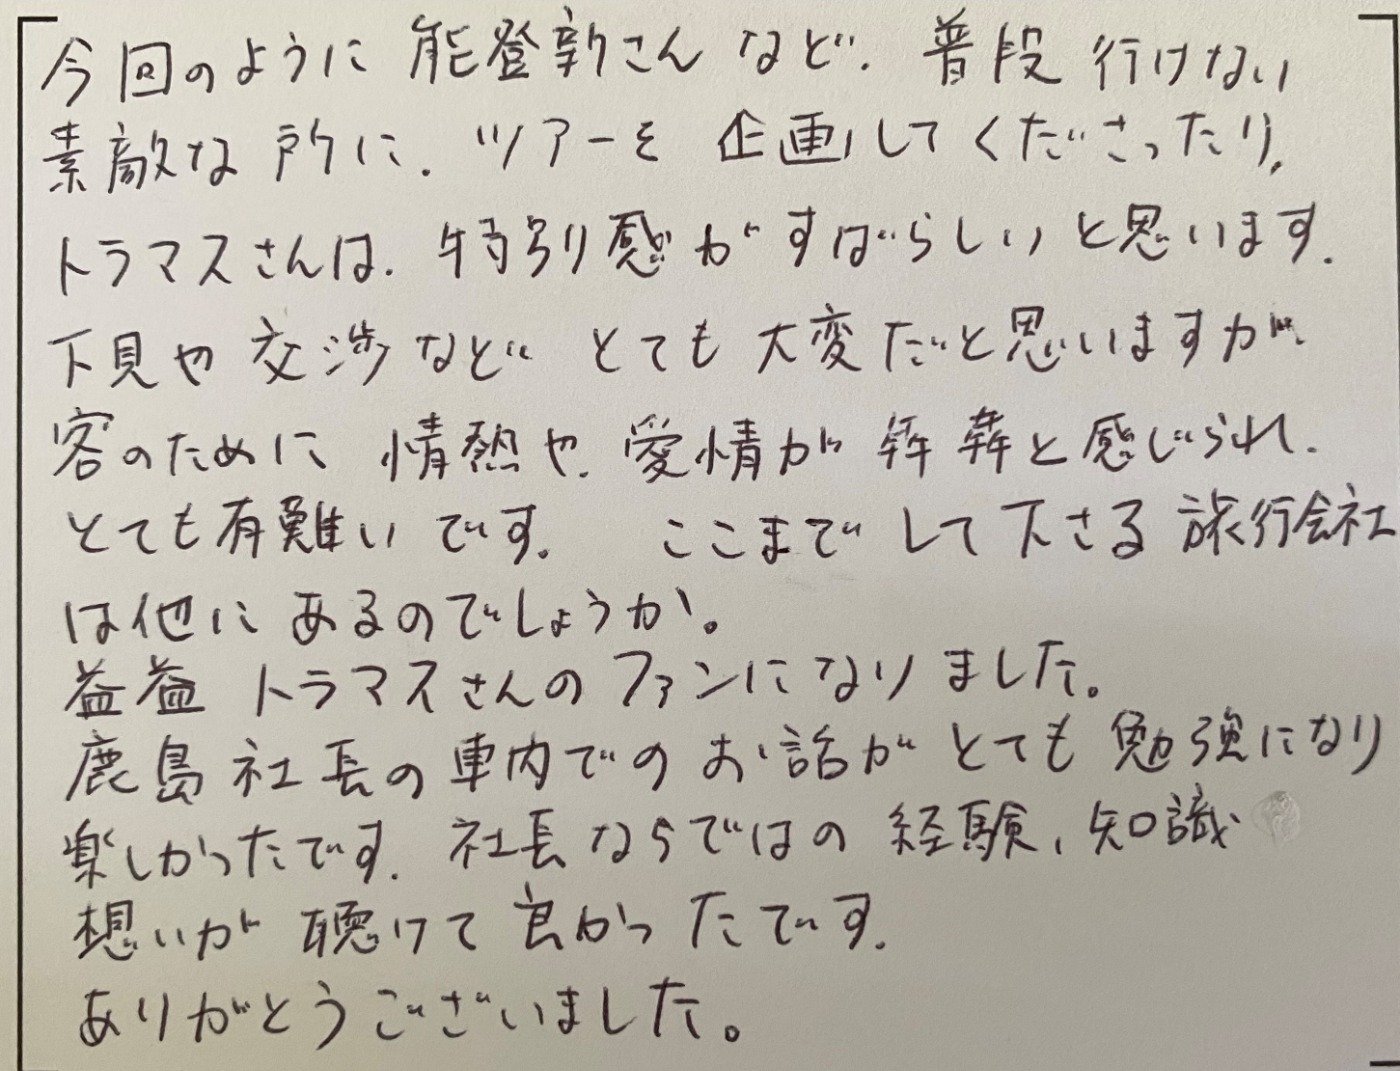 今回のように能登新さんなど、普段行けない
素敵な所に、ツアーを企画してくださったり、
トラマスさんは、特別感がすばらしいと思います。
下見や交渉などとても大変だと思いますが、
客のために情熱や、愛情がと感じられ、
とても有難いです。 ここまでして下さる旅行会社
は他にあるのでしょうか。
益益トラマスさんのファンになりました。
鹿島社長の車内でのお話がとても勉強になり
楽しかったです。社長ならではの経験、知識
想いが聴けて良かったです。
ありがとうございました。